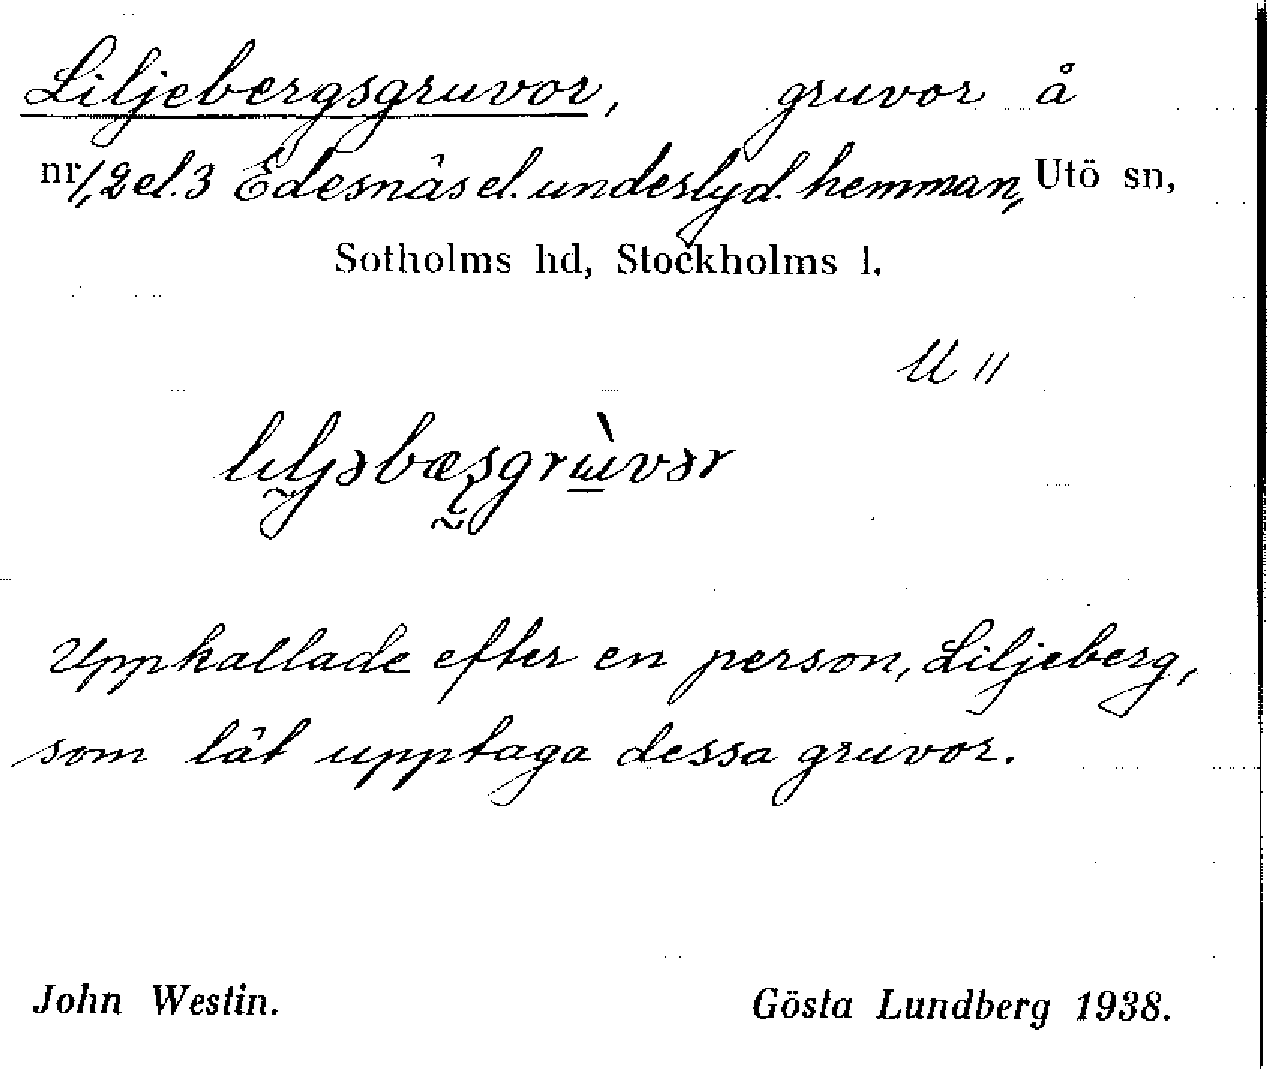 Liljebergsgruvor, gruvor å
nr 1, 2 el. 3 Edesnäs el. underlyd. hemman, Utö sn,
Sotholms hd, Stockholms l.
U 11
Uppkallade efter en person, Liljeberg,
som lät upptaga dessa gruvor.
John Westin. Gösta Lundberg 1938.